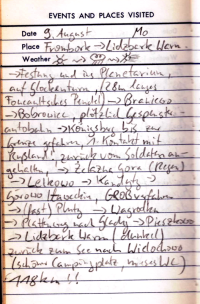 EVENTS AND PLACES VISITED
Date 9. August Mo
Place Frombork → Lidzbark Warm.
Weather
→ Festung und ins Planetarium,
auf Glockenturm, (28m langes
Foucaultsches Pendel) → Braniewo
→ Bobrowiec, plötzlich Gespenster-
autobahn → Königsberg bis zur
Grenze gefahren, 1. Kontakt mit
Rußland, zurück vom Soldaten an-
gehalten, → Żelazna Góra (Regen)
→ Lelkowo → Kandyty →
Górowo Iławeckie, GROB verfahren
→ (fast) Pluty → Wagrodno
→ Plattnung nach → Pieszkowo
→ Lidzbark Warm (Dunkel)
zurück zum See nach Wielochowo
(schöner Campingplatz, mieses WC)
118 km !!